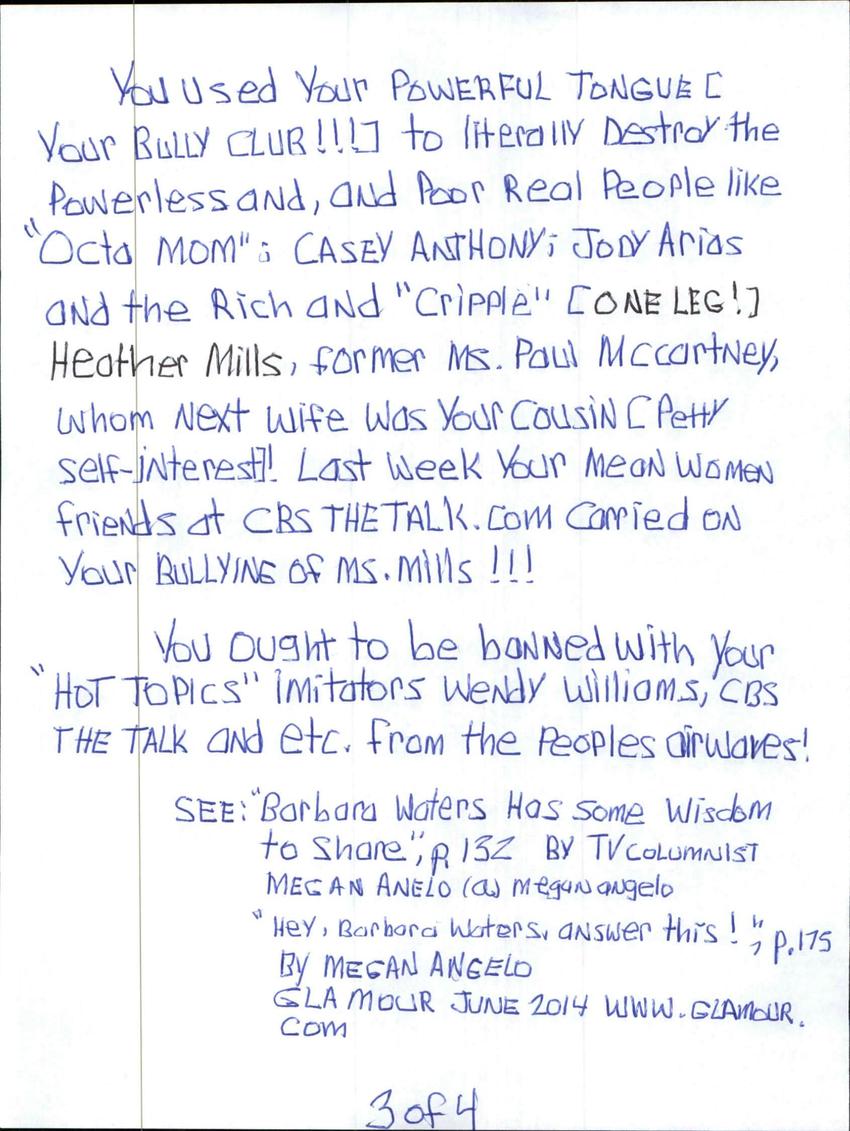 You used Your POWERFUL TONGUE [
Your BULLY CLUB!!!] to literally Destroy the
Powerless and, and Poor Real People like
"Octo MOM"; CASEY ANTHONY; JODY Arias
and the Rich and "Cripple" [ONE LEG!]
Heather Mills, former Ms. Paul McCartney,
whom Next wife was Your Cousin [Petty
self-interest]! Last week Your Mean Women
friends at CBS THETALK.COM Carried on
Your BULLYING of Ms. Mills !!!
You ought to be banned with Your
"HOT TOPICS" imitators Wendy Williams, CBS
THE TALK and etc. from the Peoples airwaves!
SEE: "Barbara Waters Has some Wisdom
to Share", p 132 BY TV COLUMNIST
MEGAN ANELO (a) megan angelo
"Hey, Barbara Waters, answer this!"; p.175
By MEGAN ANGELO
GLAMOUR JUNE 2014 WWW.GLAMOUR.
COM
3 of 4